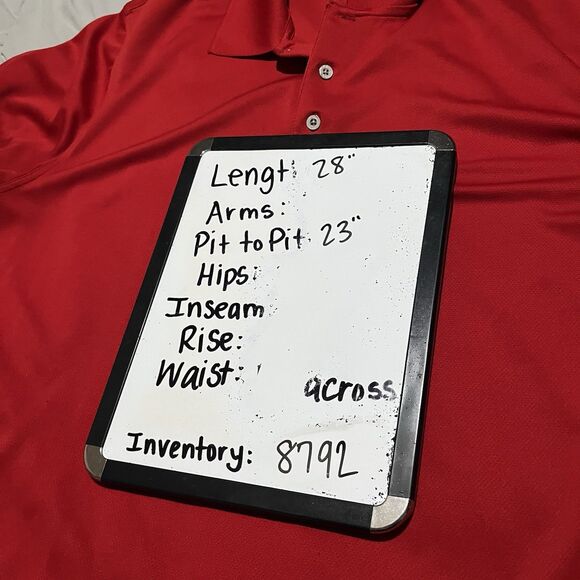 Lengt: 28"
Arms:
Pit to Pit 23"
Hips:
Inseam
Rise:
Waist:
across
Inventory: 8792